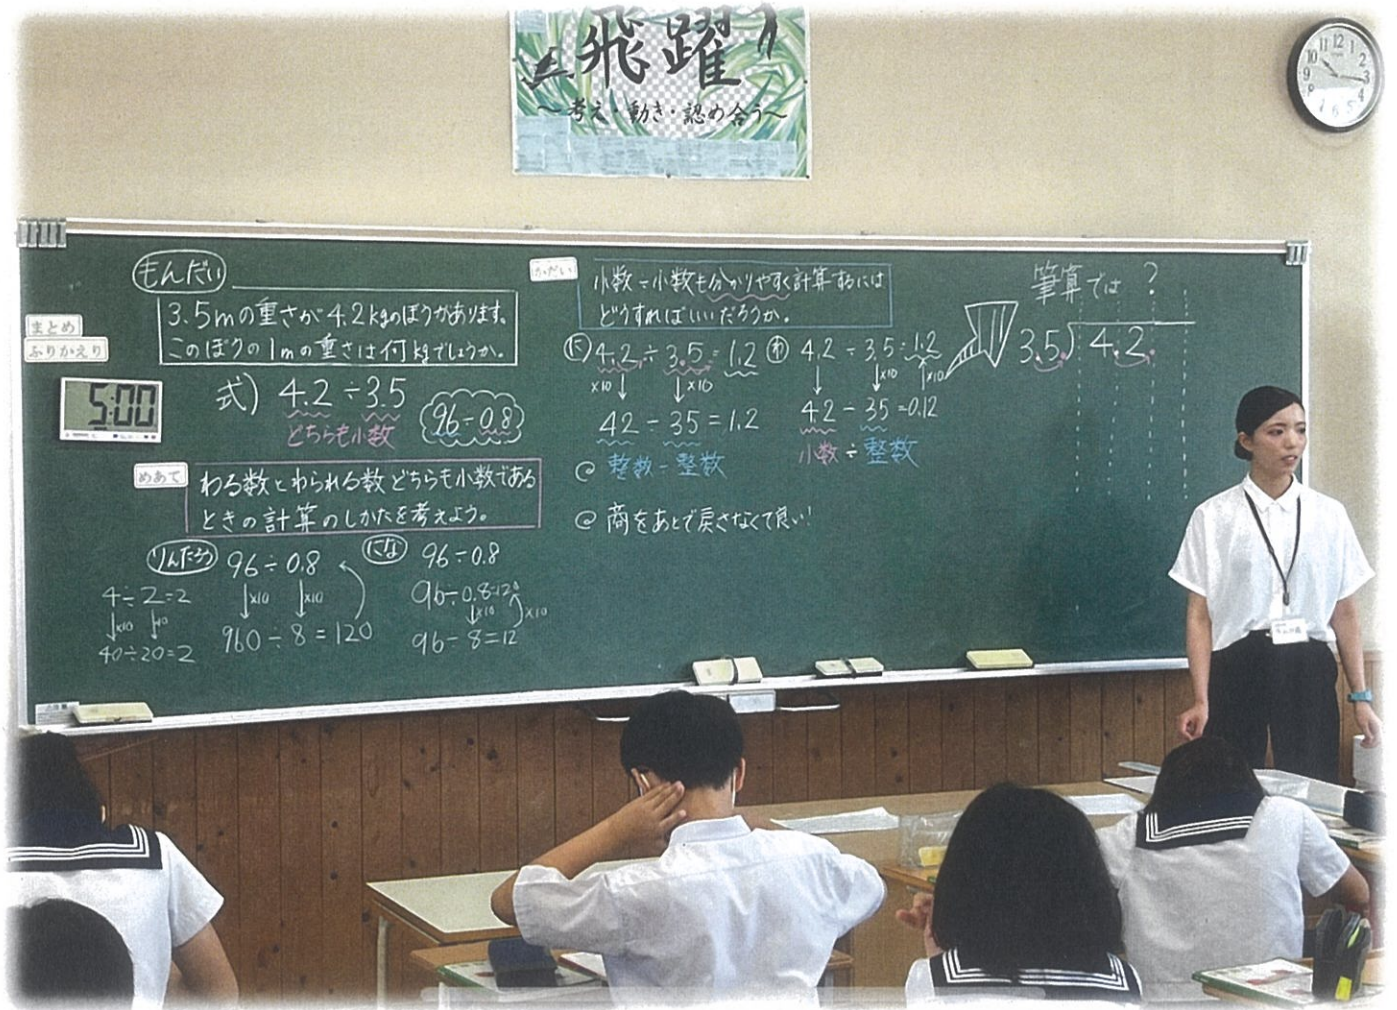 飛躍
～考え・動き・認め合う～
もんだい
3.5mの重さが4.2kgのぼうがあります。
このぼうの1mの重さは何kgでしょうか。
まとめ
ふりかえり
5:00
式) 4.2÷3.5
どちらも小数
96÷0.8
めあて
わる数とわられる数どちらも小数である
ときの計算のしかたを考えよう。
りんたろう
96÷0.8
×10 ×10
960÷8=120
4÷2=2
×10 ×10
40÷20=2
になな
96÷0.8
96÷0.8=120
×10 ×10
96÷8=12
かだい
小数÷小数も分かりやすく計算するには
どうすればいいだろうか。
に 4.2÷3.5=1.2
×10 ×10
42÷35=1.2
整数÷整数
商をあとで戻さなくて良い!
わ 4.2÷3.5=1.2
×10 ×10
4.2÷35=0.12
小数÷整数
筆算では?
3.5)4.2
12
11 1
10 2
9 3
8 4